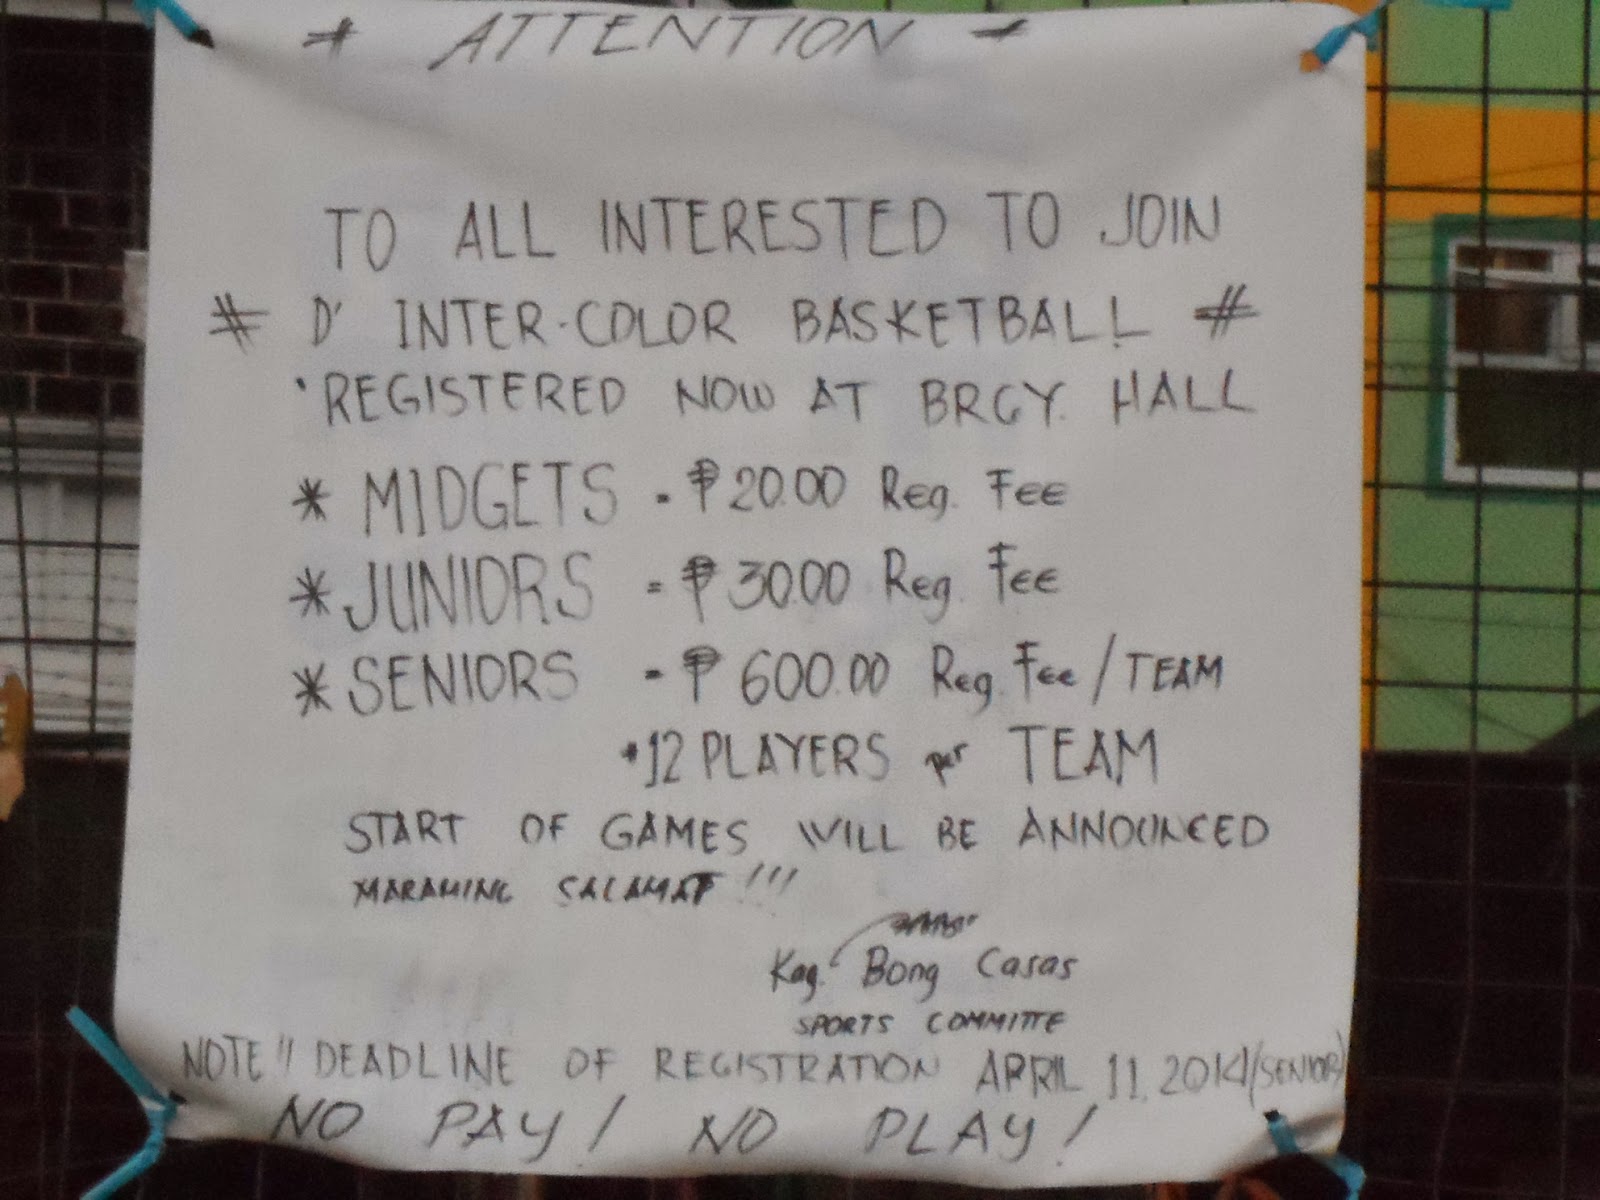 * ATTENTION *
TO ALL INTERESTED TO JOIN
# D' INTER-COLOR BASKETBALL #
•REGISTERED NOW AT BRGY. HALL
* MIDGETS = ₱20.00 Reg. Fee
* JUNIORS = ₱30.00 Reg. Fee
* SENIORS = ₱600.00 Reg. Fee/TEAM
*12 PLAYERS per TEAM
START OF GAMES WILL BE ANNOUNCED
MARAMING SALAMAT!!!
Kag. Bong Casas
SPORTS COMMITTE
NOTE!! DEADLINE OF REGISTRATION APRIL 11, 2014 (SENIOR)
NO PAY! NO PLAY!